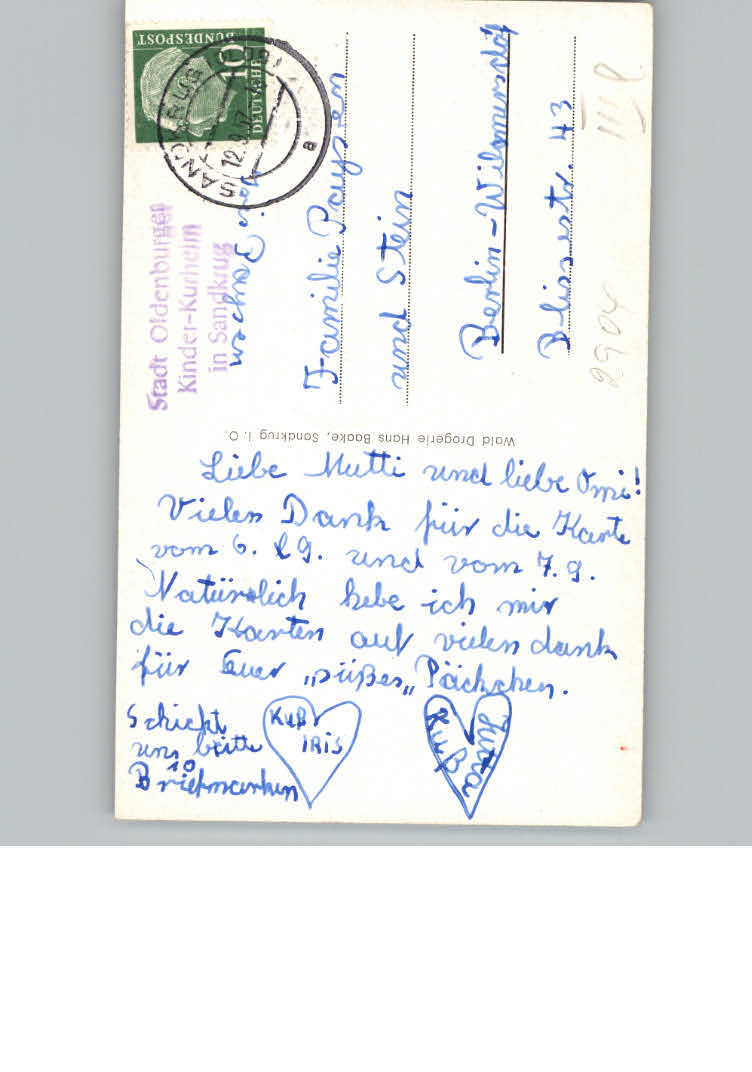 DEUTSCHE
BUNDESPOST
10
SANDKRUG
12.9.57
a
Stadt Oldenburgen
Kinder-Kurheim
in Sandkrug
Familie Paysen
und Stein
Berlin-Wilmersdorf
Blissestr. 43
III
2904
Wald Drogerie Hans Baake, Sandkrug i. O.
Liebe Mutti und liebe Omi!
Vielen Dank für die Karte
vom 6. 9. und vom 7.9.
Natürlich hebe ich mir
die Karten auf vielen dank
für Euer „süßes„ Päckchen.
Schickt
uns bitte
10
Briefmarken
Kuß
IRIS
Kuß
Jutta